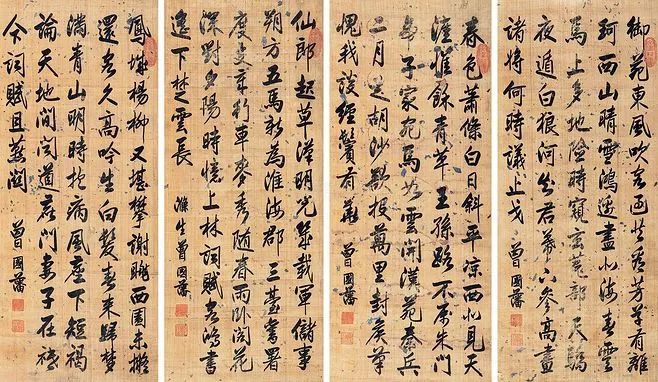 御苑東風吹客過芳草有
珂西山晴雪鴻邊盡北海春雲
馬上多地險時窺玄菟部天驕
夜遁白狼河公君幕下參高畫
諸將何時議止戈
曾國藩
春色蕭條白日斜平涼西北見天
涯惟餘青草王孫路不屬朱門
帝子家宛馬如雲開漢苑秦兵
二月走胡沙欲投萬里封侯筆
愧我談經鬢有華
曾國藩
仙郎起草漢明光幾載軍儲事
朔方五馬新為淮海郡三臺舊署
度支郎行車麥秀隨春雨臥閣花
深對夕陽時憶上林詞賦客鴻書
遙下楚雲長
滌生曾國藩
鳳城楊柳又堪攀謝朓西園未擬
還客久高吟生白髮春來歸夢
滿青山明時抱病風塵下短褐
論天地間聞道鹿門妻子在祗
今詞賦且燕關
曾國藩